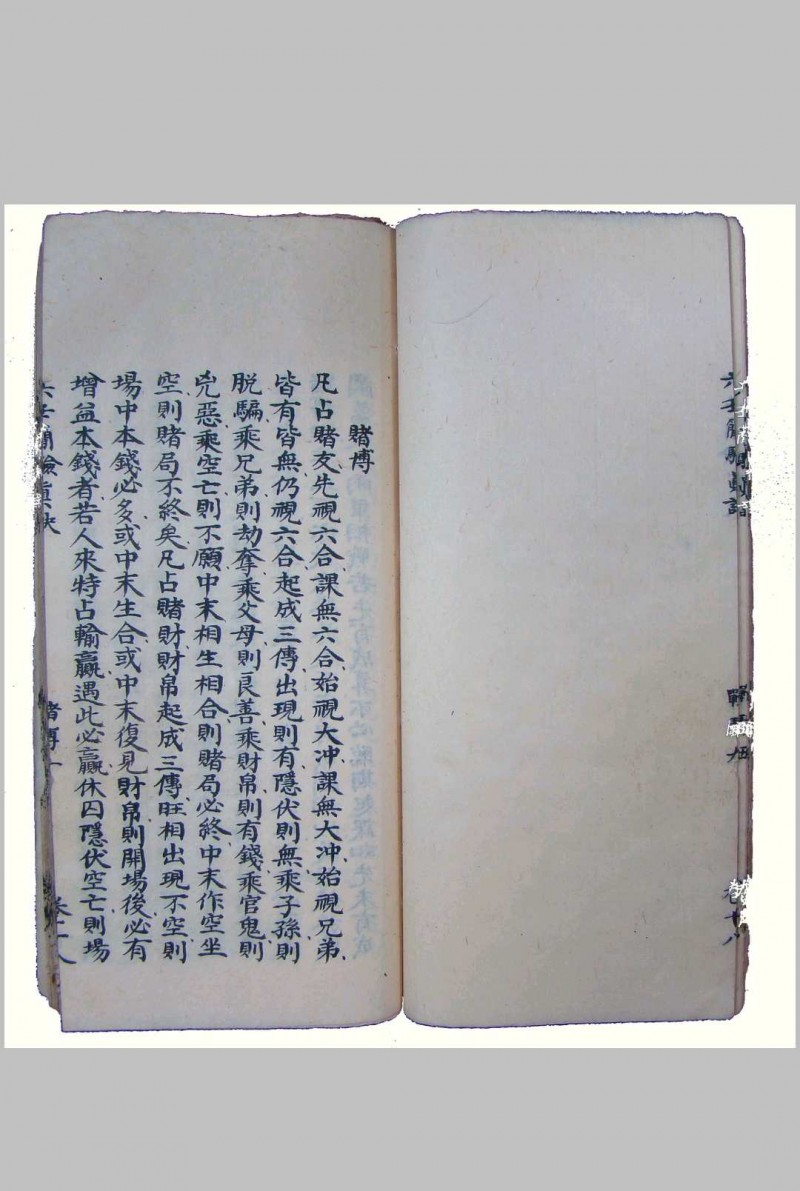 賭博
凡占賭友先視六合課無六合始視大冲課無大冲始視兄弟
皆有皆無仍視六合起成三傳出現則有隱伏則無乘子孫則
脱騙乘兄弟則劫奪乘父母則良善乘財帛則有錢乘官鬼則
兇惡乘空亡則不願中末相生相合則賭局必終中末作空坐
空則賭局不終矣凡占賭財財帛起成三傳旺相出現不空則
場中本錢必多或中末生合或中末復見財帛則開場後必有
增益本錢者若人來特占輸贏遇此必贏休囚隱伏空亡則場
六壬
賭博一
卷十八